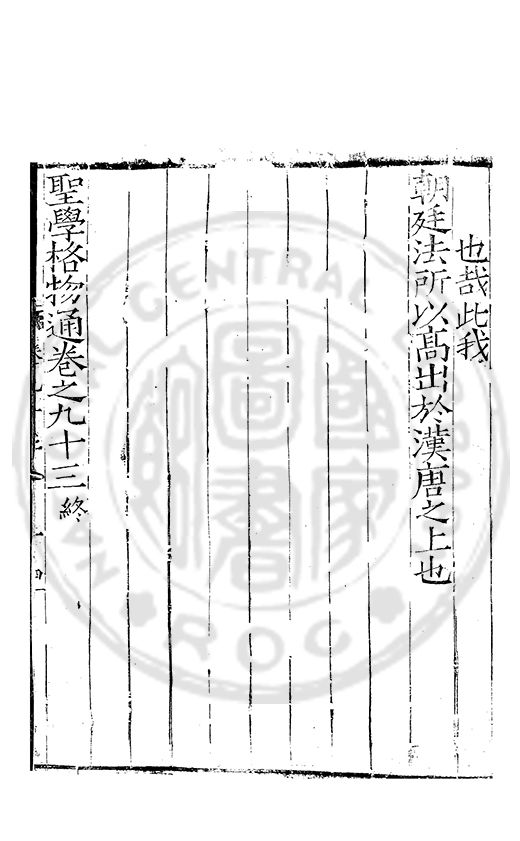 也哉此我
朝廷法所以高出於漢唐之上也
聖學格物通卷之九十三終
國家圖書館
NATIONAL CENTRAL LIBRARY
ROC